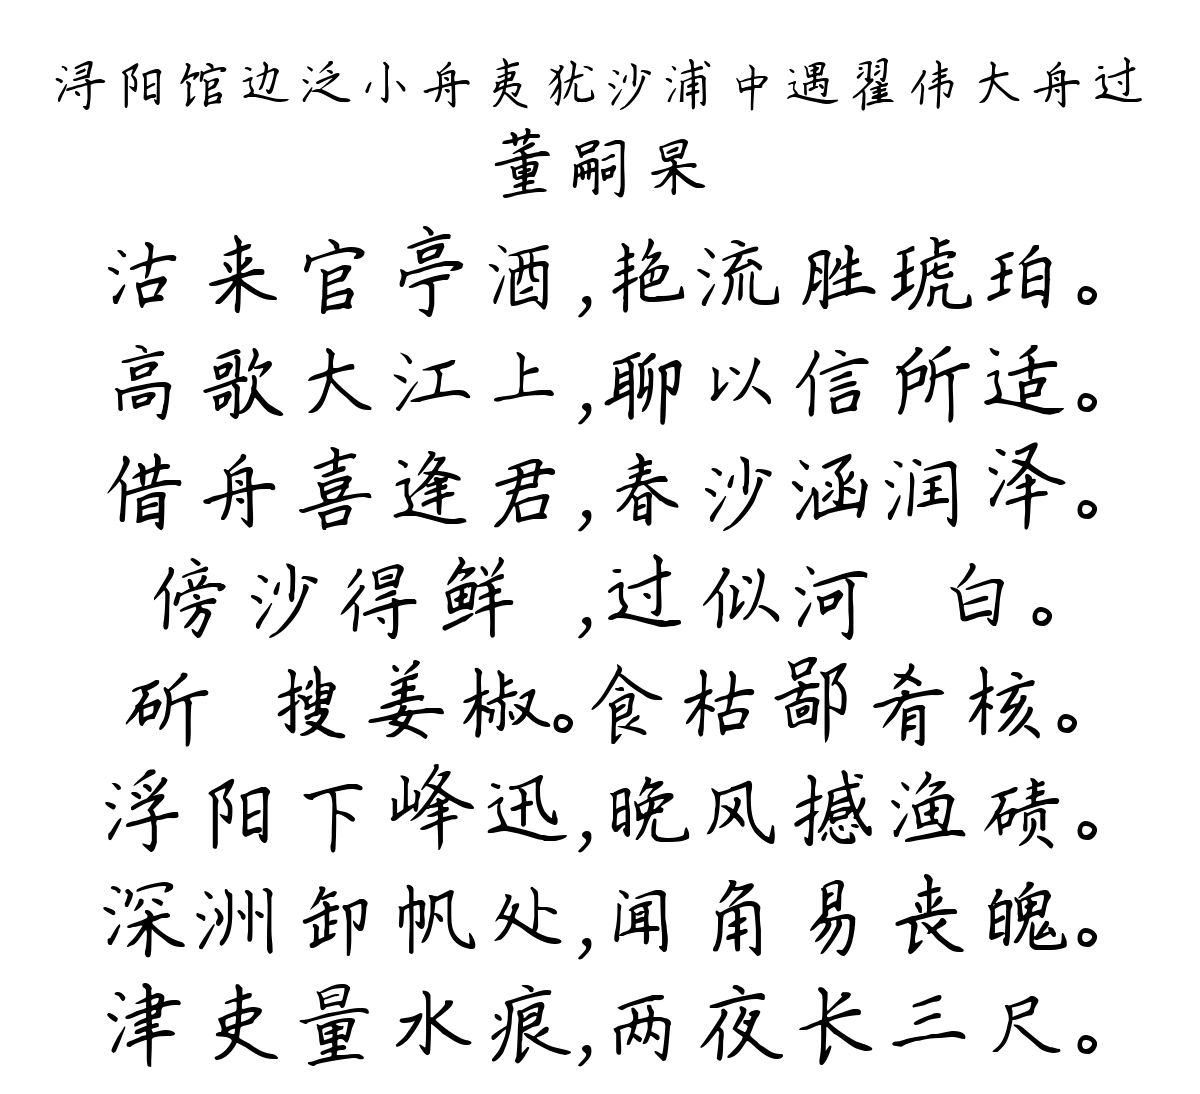 浔阳馆边泛小舟夷犹沙浦中遇翟伟大舟过
董嗣杲
沽来官亭酒,艳流胜琥珀。
高歌大江上,聊以信所适。
借舟喜逢君,春沙涵润泽。
傍沙得鲜 ,过似河 白。
斫 搜姜椒。食枯鄙肴核。
浮阳下峰迅,晚风撼渔碛。
深洲卸帆处,闻角易丧魄。
津吏量水痕,两夜长三尺。